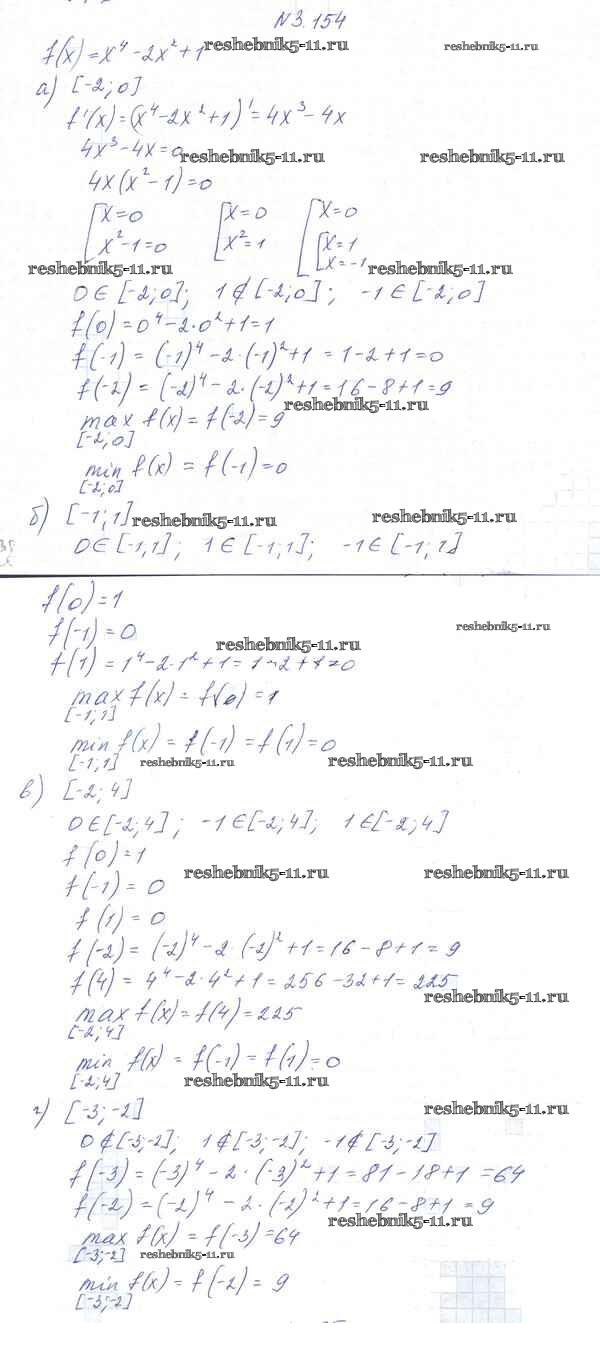 N3.154
f(x)=x⁴-2x²+1 reshebnik5-11.ru reshebnik5-11.ru
а) [-2;0]
f'(x)=(x⁴-2x²+1)'=4x³-4x
4x³-4x=0 reshebnik5-11.ru reshebnik5-11.ru
4x(x²-1)=0
[x=0 [x=0 [x=0
x²-1=0 x²=1 [x=1
reshebnik5-11.ru x=-1 reshebnik5-11.ru
0∈[-2;0]; 1∉[-2;0]; -1∈[-2;0]
f(0)=0⁴-2·0²+1=1
f(-1)=(-1)⁴-2·(-1)²+1=1-2+1=0
f(-2)=(-2)⁴-2·(-2)²+1=16-8+1=9
reshebnik5-11.ru
max f(x)=f(-2)=9
[-2;0]
min f(x)=f(-1)=0
[-2;0]
б) [-1;1] reshebnik5-11.ru reshebnik5-11.ru
0∈[-1;1]; 1∈[-1;1]; -1∈[-1;1]
f(0)=1
f(-1)=0 reshebnik5-11.ru reshebnik5-11.ru
f(1)=1⁴-2·1²+1=1-2+1=0
max f(x)=f(0)=1
[-1;1]
min f(x)=f(-1)=f(1)=0
[-1;1] reshebnik5-11.ru reshebnik5-11.ru
в) [-2;4]
0∈[-2;4]; -1∈[-2;4]; 1∈[-2;4]
f(0)=1
f(-1)=0 reshebnik5-11.ru reshebnik5-11.ru
f(1)=0
f(-2)=(-2)⁴-2·(-2)²+1=16-8+1=9
f(4)=4⁴-2·4²+1=256-32+1=225
reshebnik5-11.ru
max f(x)=f(4)=225
[-2;4]
min f(x)=f(-1)=f(1)=0
[-2;4] reshebnik5-11.ru
г) [-3;-2] reshebnik5-11.ru
0∉[-3;-2]; 1∉[-3;-2]; -1∉[-3;-2]
f(-3)=(-3)⁴-2·(-3)²+1=81-18+1=64
f(-2)=(-2)⁴-2·(-2)²+1=16-8+1=9
reshebnik5-11.ru
max f(x)=f(-3)=64
[-3;-2] reshebnik5-11.ru
min f(x)=f(-2)=9
[-3;-2]